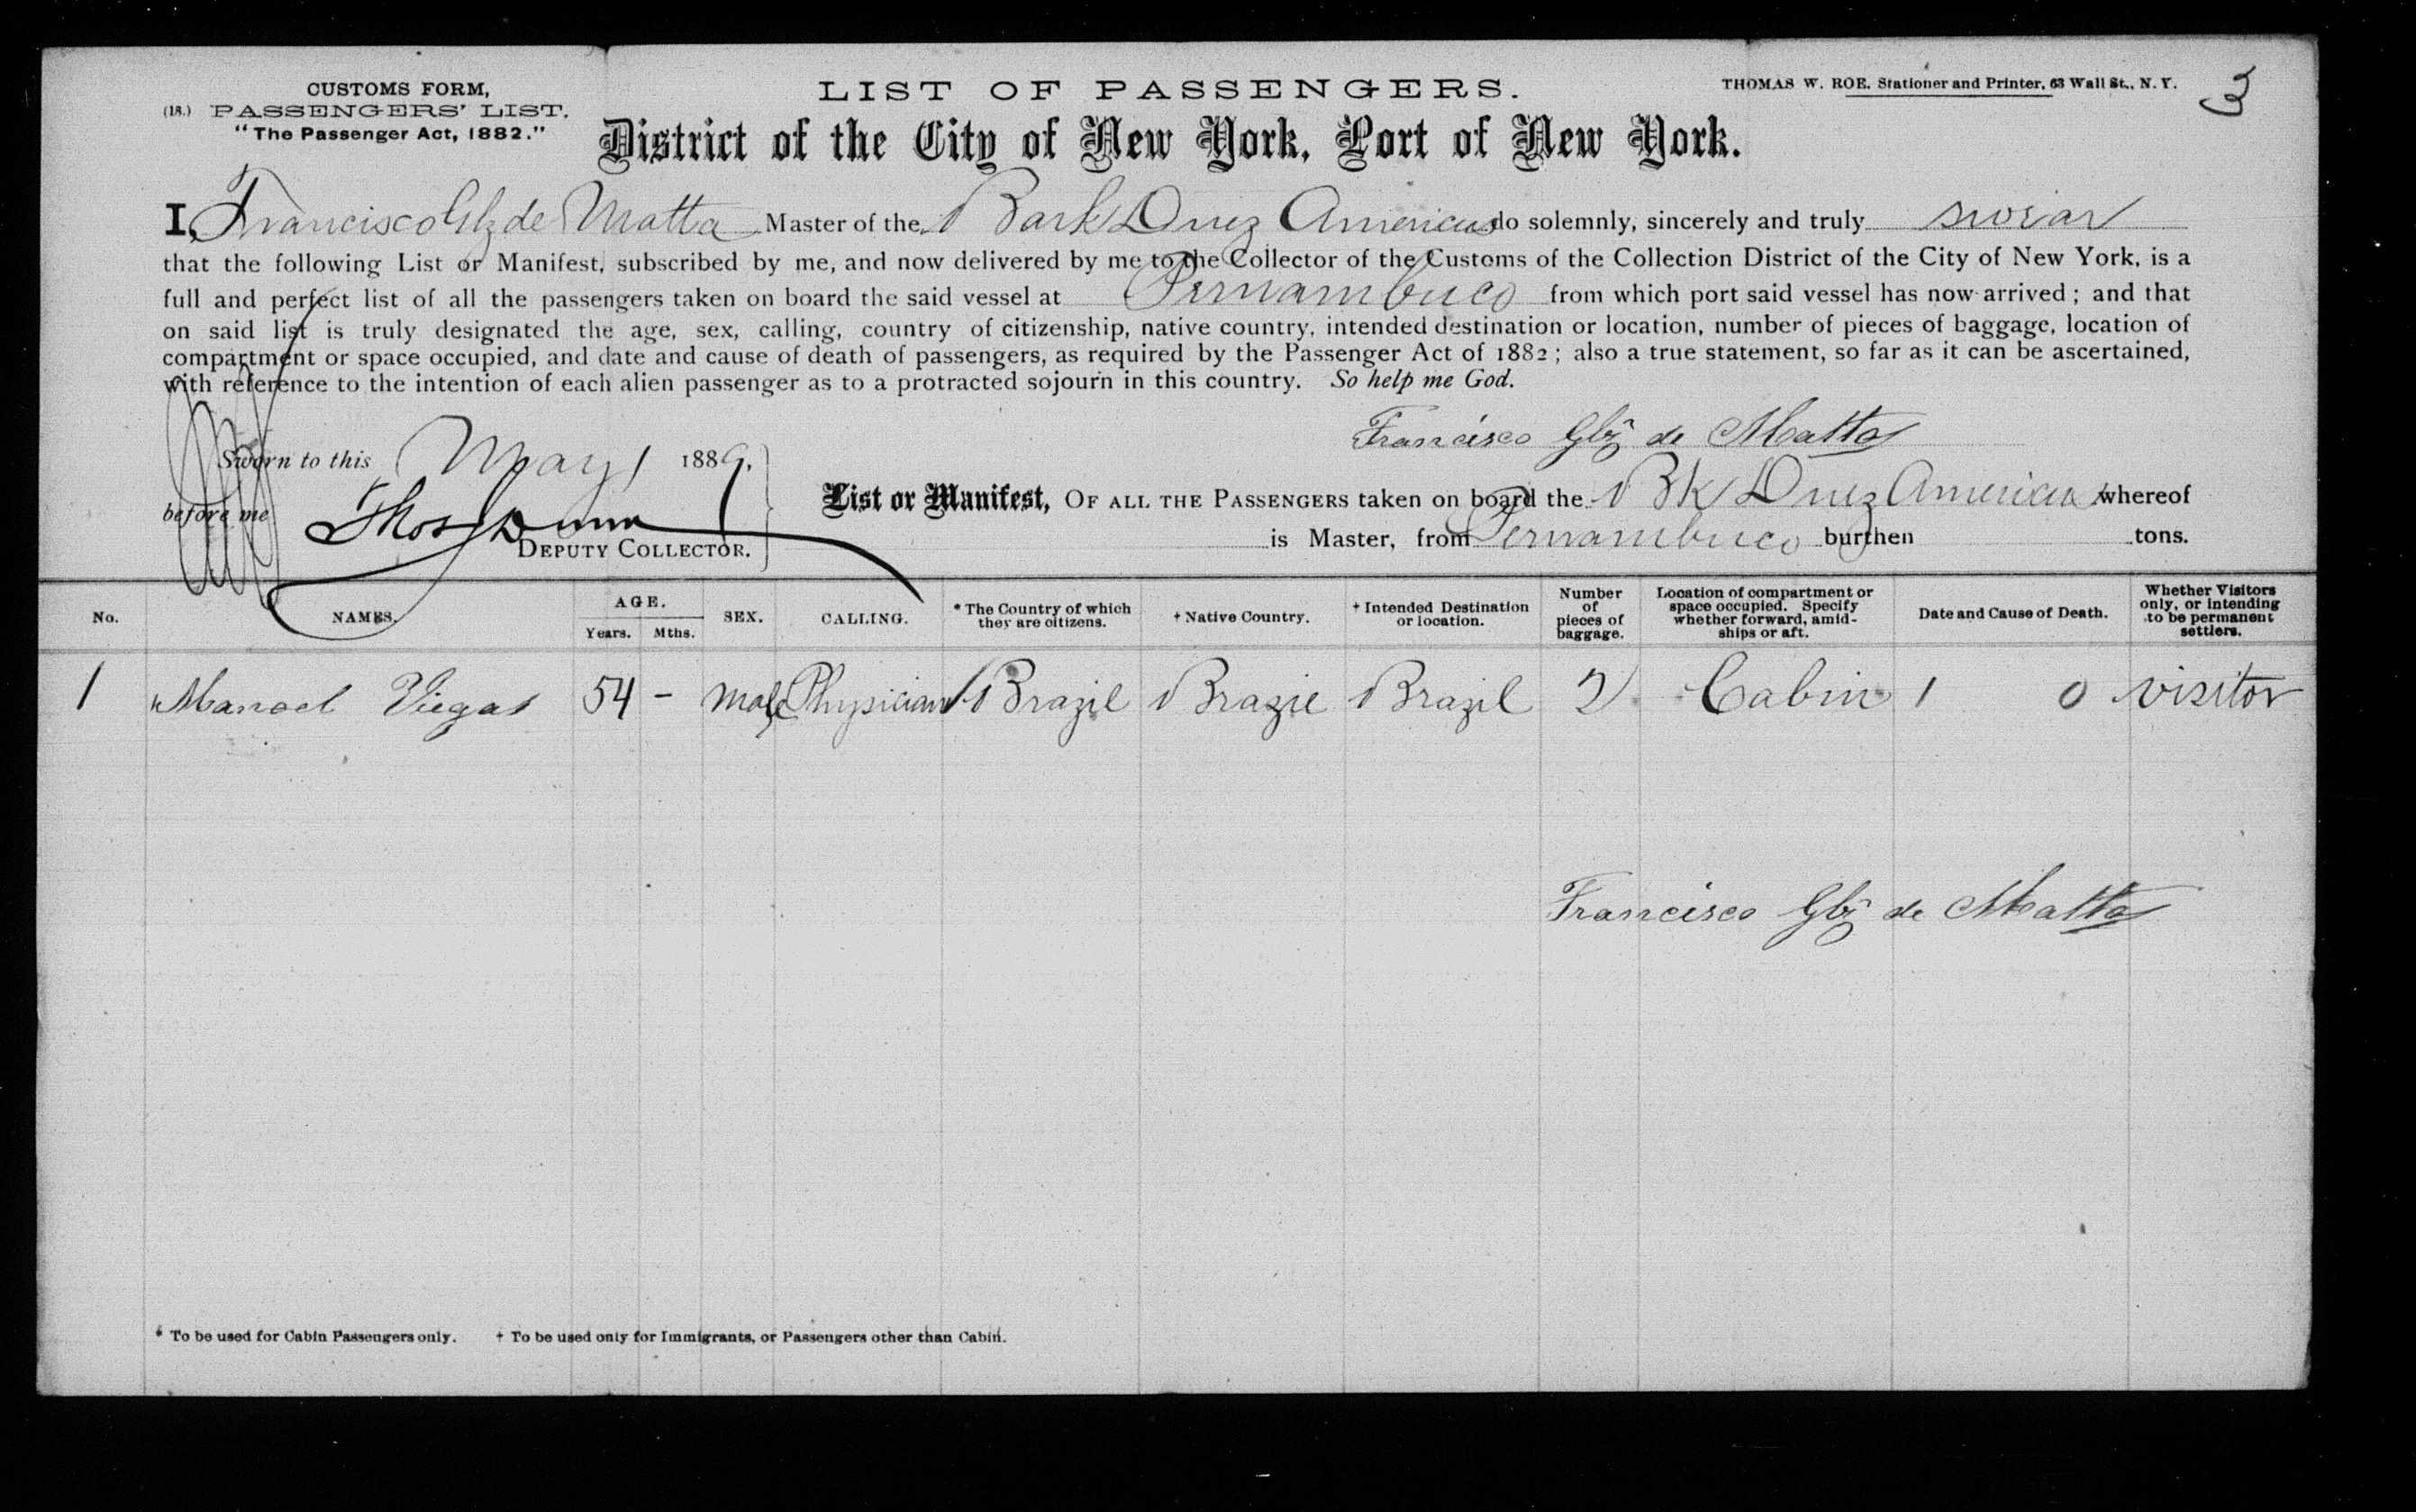 CUSTOMS FORM,
(18.) PASSENGERS' LIST.
"The Passenger Act, 1882."
LIST OF PASSENGERS.
THOMAS W. ROE, Stationer and Printer, 63 Wall St., N. Y.
3
District of the City of New York, Port of New York.
I, Francisco de Matta Master of the Bark Americas do solemnly, sincerely and truly swear
that the following List or Manifest, subscribed by me, and now delivered by me to the Collector of the Customs of the Collection District of the City of New York, is a
full and perfect list of all the passengers taken on board the said vessel at Pernambuco from which port said vessel has now arrived; and that
on said list is truly designated the age, sex, calling, country of citizenship, native country, intended destination or location, number of pieces of baggage, location of
compartment or space occupied, and date and cause of death of passengers, as required by the Passenger Act of 1882; also a true statement, so far as it can be ascertained,
with reference to the intention of each alien passenger as to a protracted sojourn in this country. So help me God.
Francisco Glz de Matta
Sworn to this May 1 1889,
before me Thos Dunn
DEPUTY COLLECTOR.
List or Manifest, OF ALL THE PASSENGERS taken on board the Bk Americas whereof
is Master, from Pernambuco burthen tons.
No. NAMES. AGE. Years. Mths. SEX. CALLING. * The Country of which they are citizens. † Native Country. † Intended Destination or location. Number of pieces of baggage. Location of compartment or space occupied. Specify whether forward, amidships or aft. Date and Cause of Death. Whether Visitors only, or intending to be permanent settlers.
1 Manoel Viegas 54 - Male Physician Brazil Brazil Brazil 2 Cabin 1 0 visitor
Francisco Glz de Matta
* To be used for Cabin Passengers only. † To be used only for Immigrants, or Passengers other than Cabin.